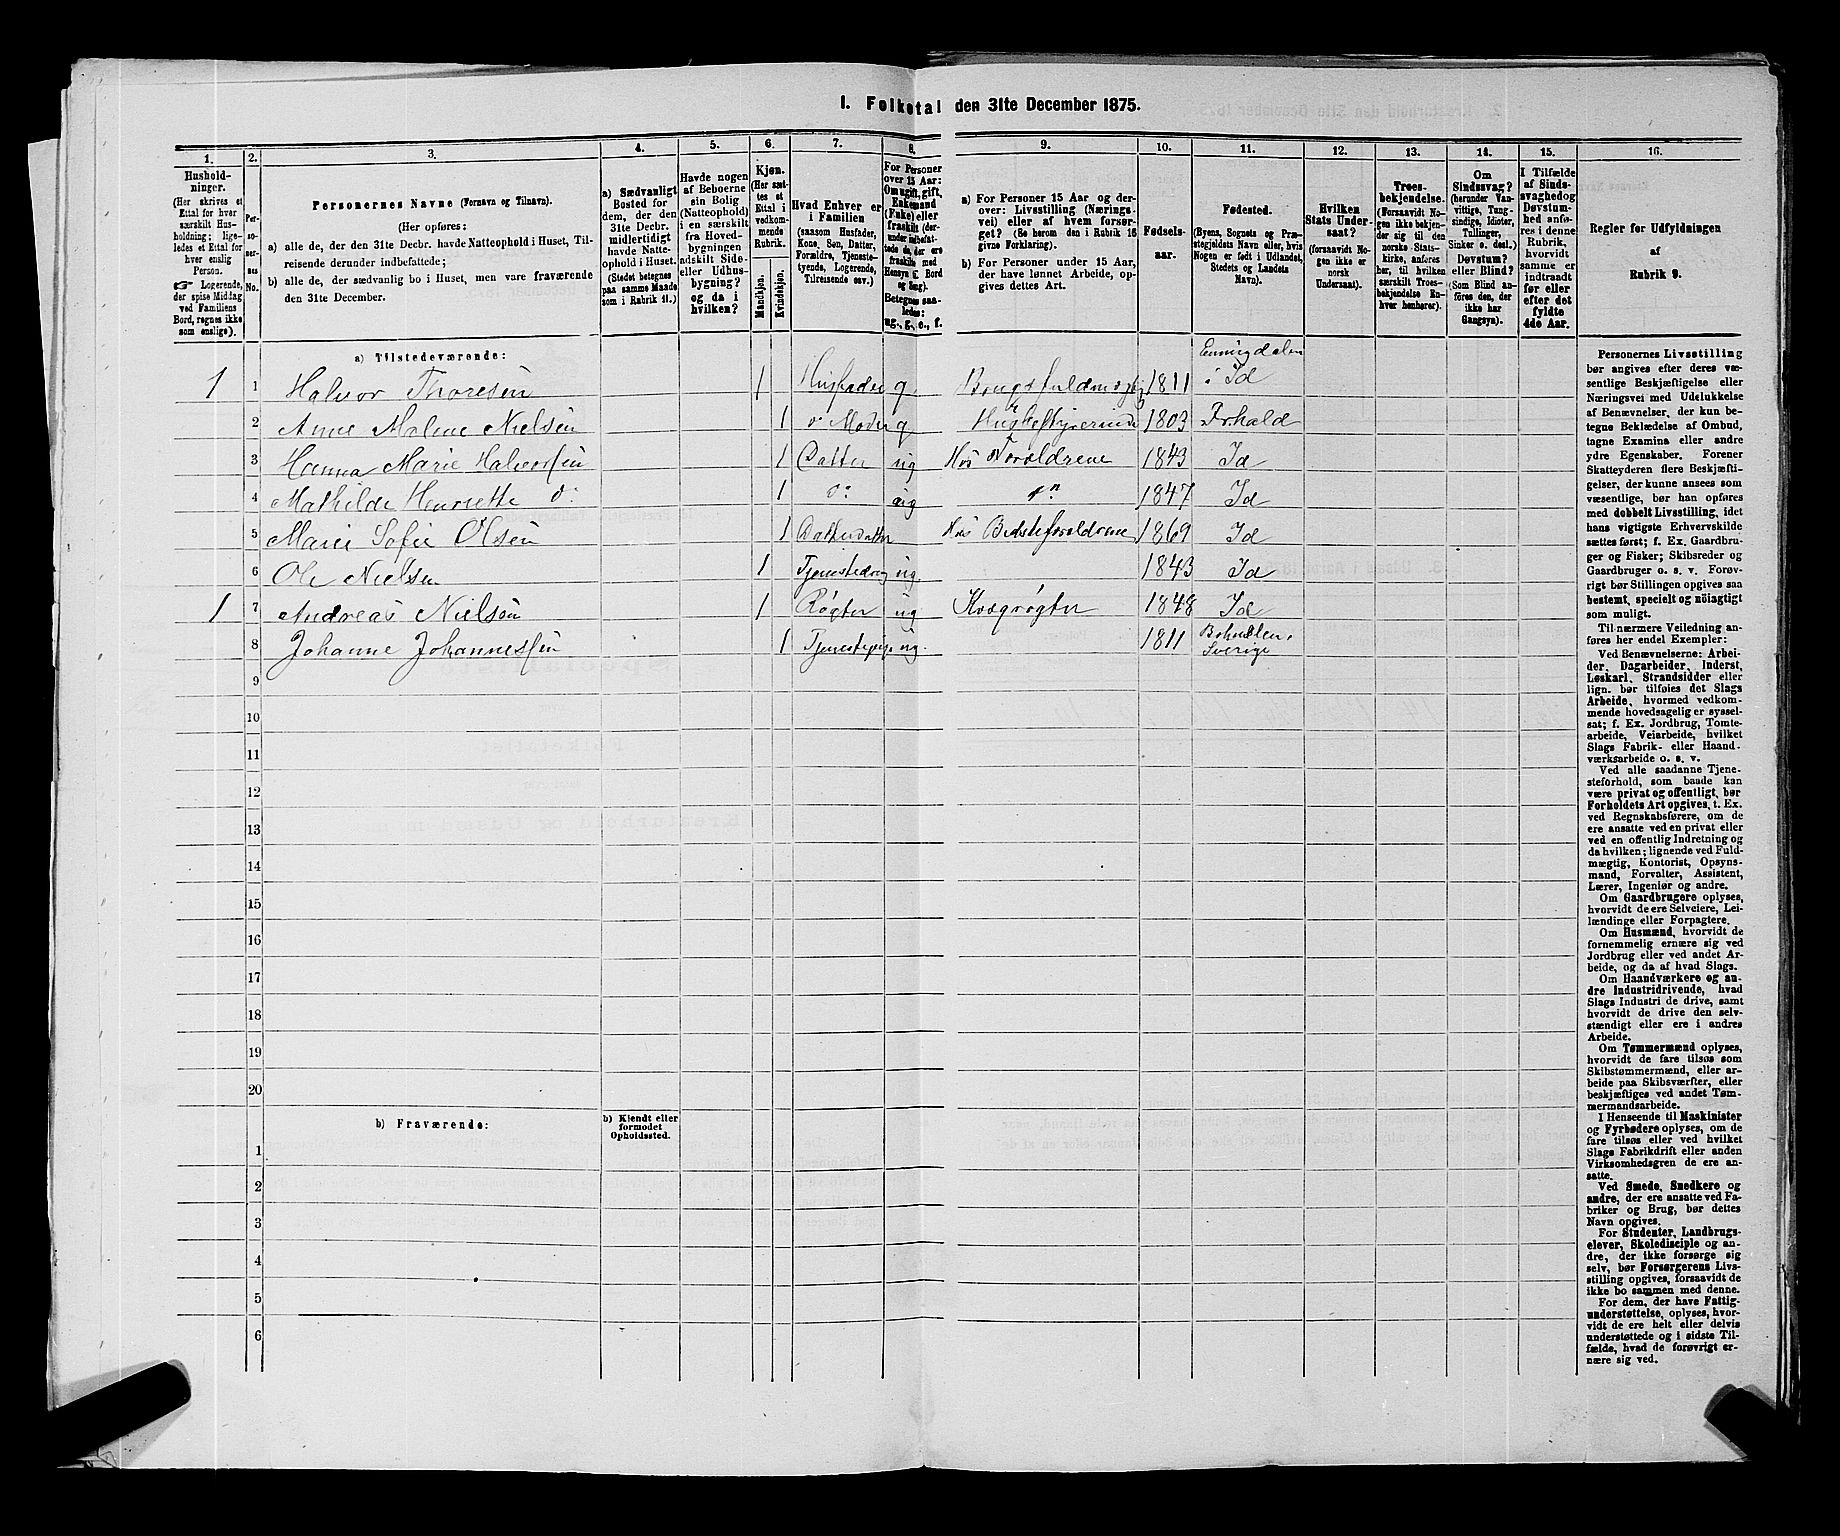 1. Folketal den 31te December 1875.
1.
2.
3.
4.
5.
6.
7.
8.
9.
10.
11.
12.
13.
14.
15.
16.
Hushold-
ninger.
(Her skrives et
Ettal for hver
særskilt Hus-
holdning; lige-
ledes et Ettal for
hver enslig
Person.
☞ Logerende,
der spise Middag
ved Familiens
Bord, regnes ikke
som enslige).
Per-
so-
ner-
nes
No.
Personernes Navne (Fornavn og Tilnavn).
(Her opføres:
a) alle de, der den 31te Decbr. havde Natteophold i Huset, Til-
reisende derunder indbefattede;
b) alle de, der sædvanlig bo i Huset, men vare fraværende
den 31te December.
a) Sædvanligt
Bosted for
dem, der den
31te Decbr.
midlertidigt
havde Natte-
ophold i Huset.
(Stedet betegnes
paa samme Maade
som i Rubrik 11.)
Havde nogen
af Beboerne
sin Bolig
(Natteophold)
i en særskilt
fra Hoved-
bygningen
adskilt Side-
eller Udhus-
bygning?
og da i
hvilken?
Kjøn.
(Her sæt-
tes et
Ettal i
vedkom-
mende
Rubrik.
Mandkjøn.
Kvindekjøn.
Hvad Enhver er
i Familien
(saasom Husfader,
Kone, Søn, Datter,
Forældre, Tjeneste-
tyende, Logerende,
Tilreisende osv.)
For Personer
over 15 Aar:
Om ugift, gift,
Enkemand
(Enke) eller
fraskilt (der-
under indbefat-
tede de, der ere
fraskilte med
Hensyn til Bord
og Seng).
Betegnes saa-
ledes:
ug., g., e., f.
a) For Personer 15 Aar og der-
over: Livsstilling (Nærings-
vei) eller af hvem forsør-
get? (Se herom den i Rubrik 16
givne Forklaring).
b) For Personer under 15 Aar,
der have lønnet Arbeide, op-
gives dettes Art.
Fødsels-
aar.
Fødested.
(Byens, Sognets og Præ-
stegjeldets Navn eller, hvis
Nogen er født i Udlandet,
Stedets og Landets
Navn).
Hvilken
Stats Under-
saat?
(forsaavidt No-
gen ikke er
norsk
Undersaat).
Troes-
bekjendelse.
(Forsaavidt No-
gen ikke bekjen-
der sig til den
norske Stats-
kirke, anføres
her, til hvilken
særskilt Troes-
bekjendelse En-
hver henhører).
Om
Sindssvag?
(herunder Van-
vittige, Tung-
sindige, Idioter,
Tullinger,
Sinker o. desl.)
Døvstum?
eller Blind?
(Som Blind an-
føres den, der
ikke har
Gangsyn).
I Tilfælde
af Sinds-
svaghed og
Døvstum-
hed anfø-
res i denne
Rubrik,
hvorvidt
samme er
indtraadt
før eller
efter det
fyldte
4de Aar.
Regler for Udfyldningen
af
Rubrik 9.
a) Tilstedeværende:
1 1 Halvor Thoresen 1 Husfader g. 1811 Enningdalen
i Id
2 Anne Malene Nielsen 1 do Moder g 1803 Frhald
3 Hanna Marie Halvorsen 1 Datter ug Hos Forældrene 1843 Id
4 Mathilde Henriette do 1 do ug do 1847 Id
5 Marie Sofie Olsen 1 Datterdatter Hos Bedsteforældrene 1869 Id
6 Ole Nielsen 1 Tjenestedreng ug. 1843 Id
1 7 Andreas Nielsen 1 Røgter ug Kvægrøgter 1848 Id
8 Johanne Johannessen 1 Tjenestepige ug. 1811 Bohuslen,
Sverige
9
10
11
12
13
14
15
16
17
18
19
20
b) Fraværende:
b) Kjendt eller
formodet
Opholdssted.
1
2
3
4
5
6
Personernes Livsstilling
bør angives efter deres væ-
sentlige Beskjæftigelse eller
Næringsvei med Udelukkelse
af Benævnelser, der kun be-
tegne Beklædelse af Ombud,
tagne Examina eller andre
ydre Egenskaber. Forener
Skatteyderen flere Beskjæfti-
gelser, der kunne ansees som
væsentlige, bør han opføres
med dobbelt Livsstilling, idet
hans vigtigste Erhvervskilde
sættes først; f. Ex. Gaardbru-
ger og Fisker; Skibsreder og
Gaardbruger o. s. v. Forøv-
rigt bør Stillingen opgives saa
bestemt, specielt og nöiagtigt
som muligt.
Til nærmere Veiledning an-
føres her endel Exempler:
Ved Benævnelserne: Arbei-
der, Dagarbeider, Inderst,
Løskarl, Strandsidder eller
lign. bør tilføies det Slags
Arbeide, hvormed vedkom-
mende hovedsagelig er syssel-
sat; f. Ex. Jordbrug, Tomte-
arbeide, Veiarbeide, hvilket
Slags Fabrik- eller Haand-
værksarbeide o. s. v.
Ved alle saadanne Tjene-
steforhold, som baade kan
være privat og offentligt, bør
Forholdets Art opgives, t. Ex.
ved Regnskabsførere, om de
ere ansatte ved en privat eller
ved en offentlig Indretning og
da hvilken; lignende ved Fuld-
mægtig, Kontorist, Opsyns-
mand, Forvalter, Assistent,
Lærer, Ingeniør og andre.
Om Gaardbrugere oplyses,
hvorvidt de ere Selveiere, Lei-
lændinge eller Forpagtere.
Om Husmænd, hvorvidt de
fornemmelig ernære sig ved
Jordbrug eller ved andet Ar-
beide, og da af hvad Slags.
Om Haandværkere og an-
dre Industridrivende, hvad
Slags Industri de drive, samt
hvorvidt de drive den selv-
stændigt eller ere i andres
Arbeide.
Om Tømmermænd oplyses,
hvorvidt de fare tilsøs som
Skibstømmermænd, eller ar-
beide paa Skibsværfter, eller
beskjæftiges ved andet Tøm-
mermandsarbeide.
I Henseende til Maskinister
og Fyrbødere oplyses, om de
fare tilsøs eller ved hvilket
Slags Fabrikdrift eller anden
Virksomhedsgren de ere an-
satte.
Ved Smede, Snedkere og
andre, der ere ansatte ved Fa-
briker og Brug, bør dettes
Navn opgives.
For Studenter, Landbrugs-
elever, Skoledisciple og an-
dre, der ikke forsørge sig
selv, bør Forsørgerens Livs-
stilling opgives, forsaavidt de
ikke bo sammen med denne.
For dem, der have Fattig-
understøttelse, oplyses, hvor-
vidt de ere helt eller delvis
understøttede og i sidste Til-
fælde, hvad de forøvrigt er-
nære sig ved.